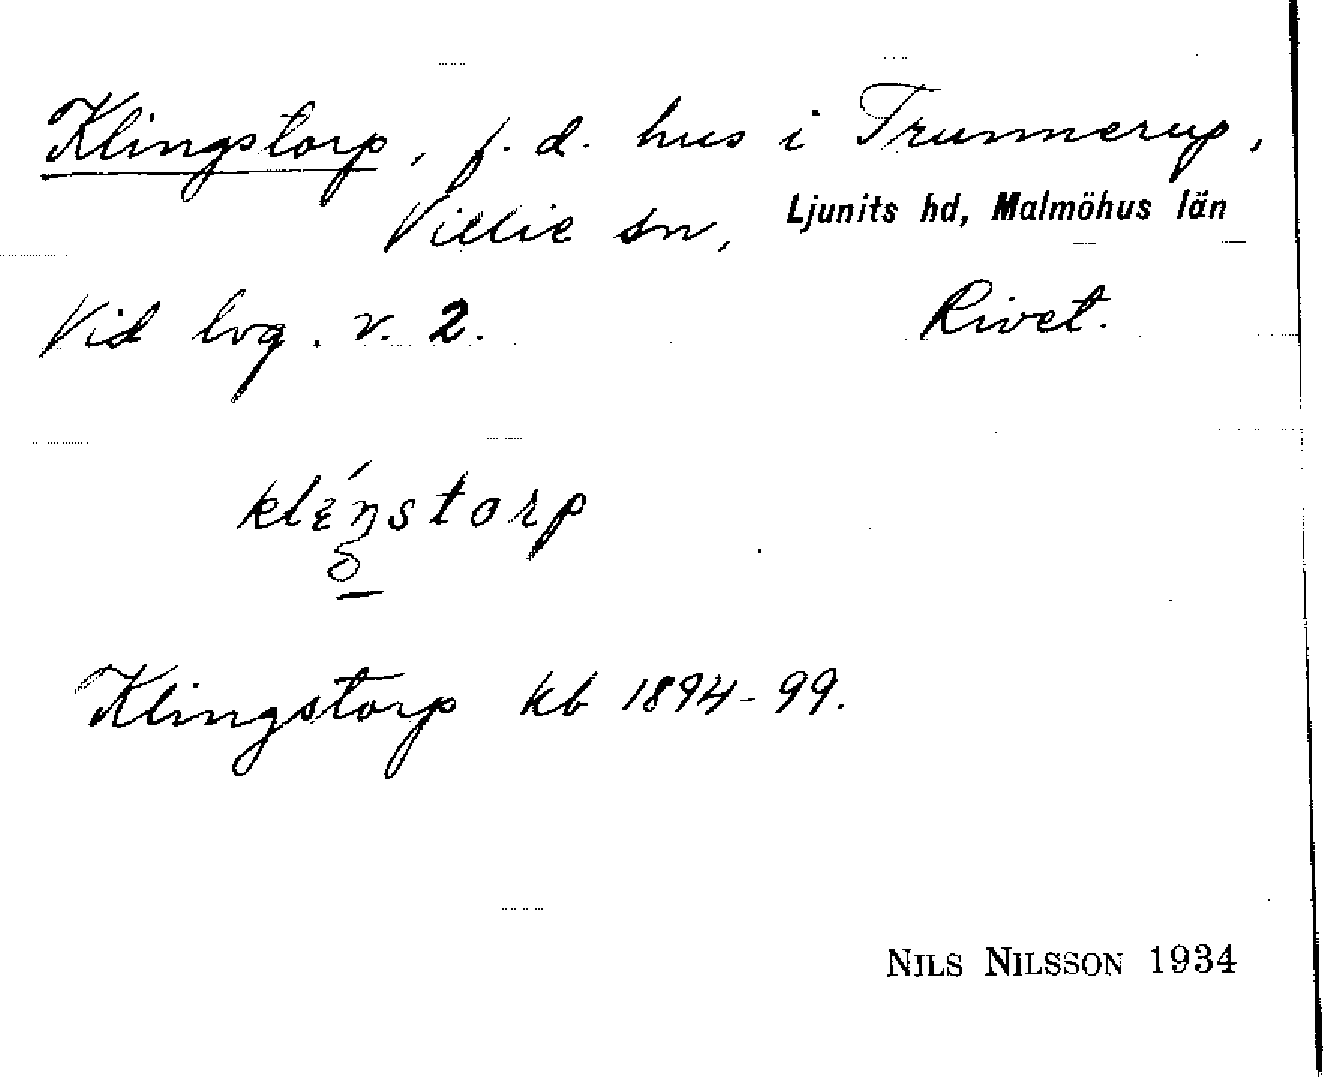 Klingstorp, f. d. hus i Trunnerup,
Villie sn, Ljunits hd, Malmöhus län
Vid lvg. v. 2. Rivet.
Klingstorp kb 1894-99.
NILS NILSSON 1934